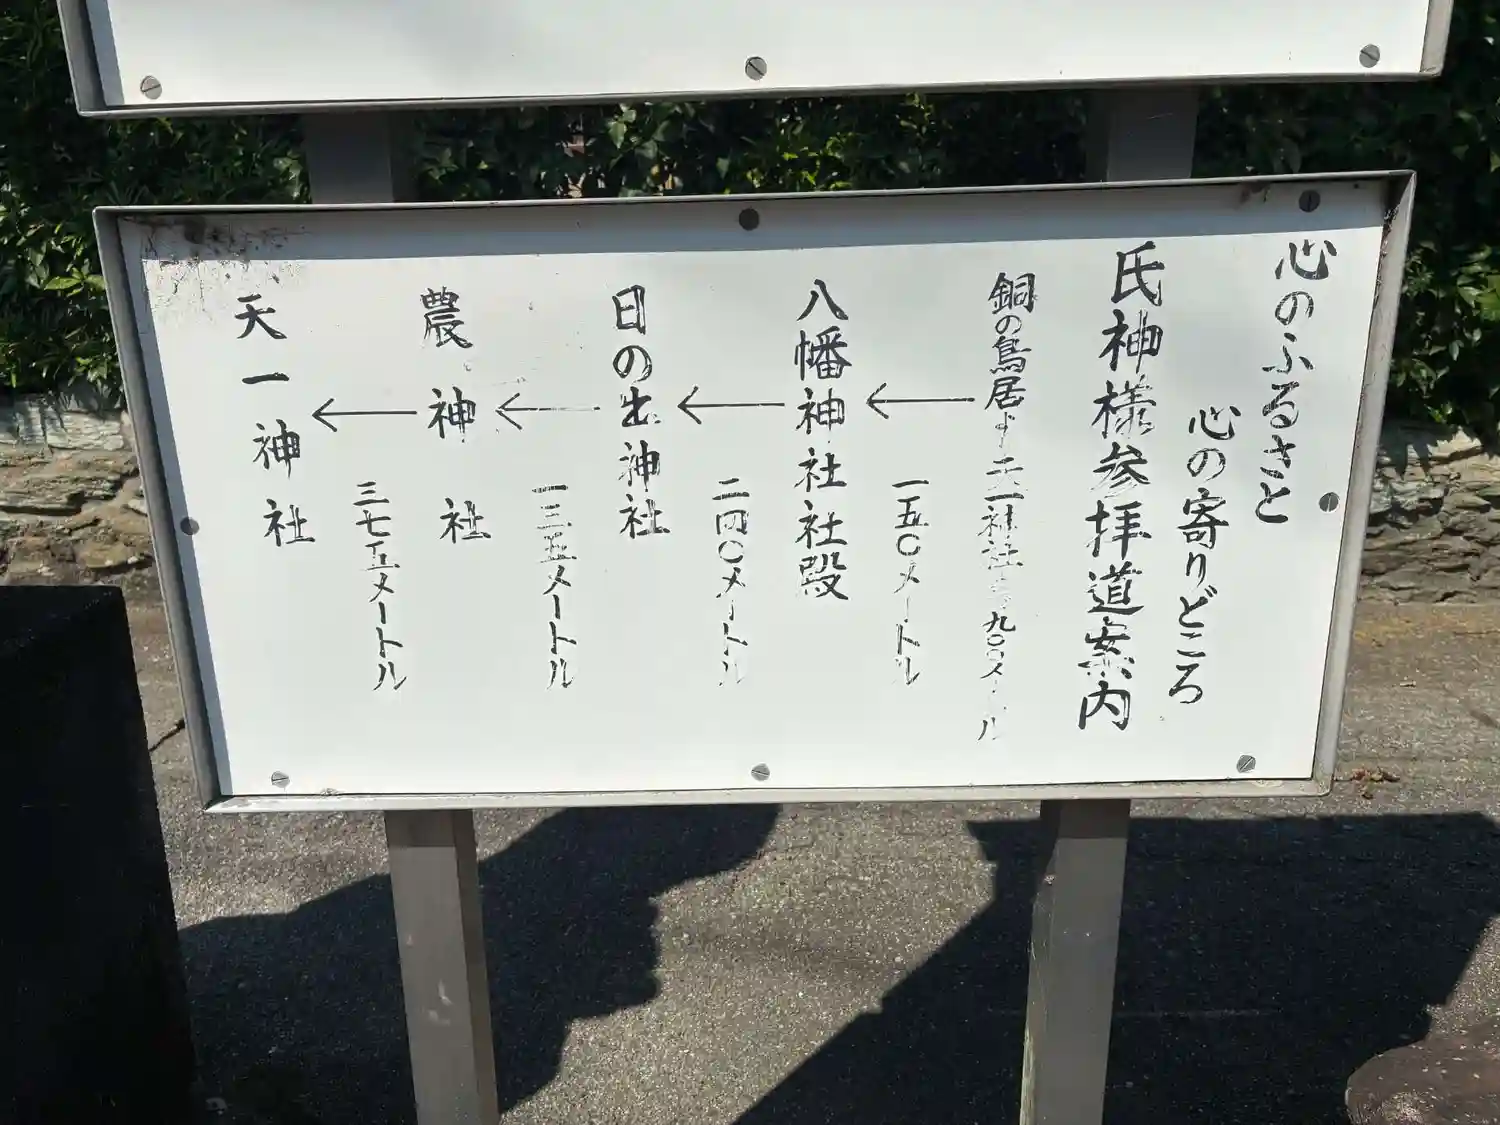 心のふるさと
心の寄りどころ
氏神様参拝道案内
銅の鳥居より天一神社まで九〇〇メートル
一五〇メートル
八幡神社社殿
二四〇メートル
日の出神社
一三五メートル
農神社
三七五メートル
天一神社